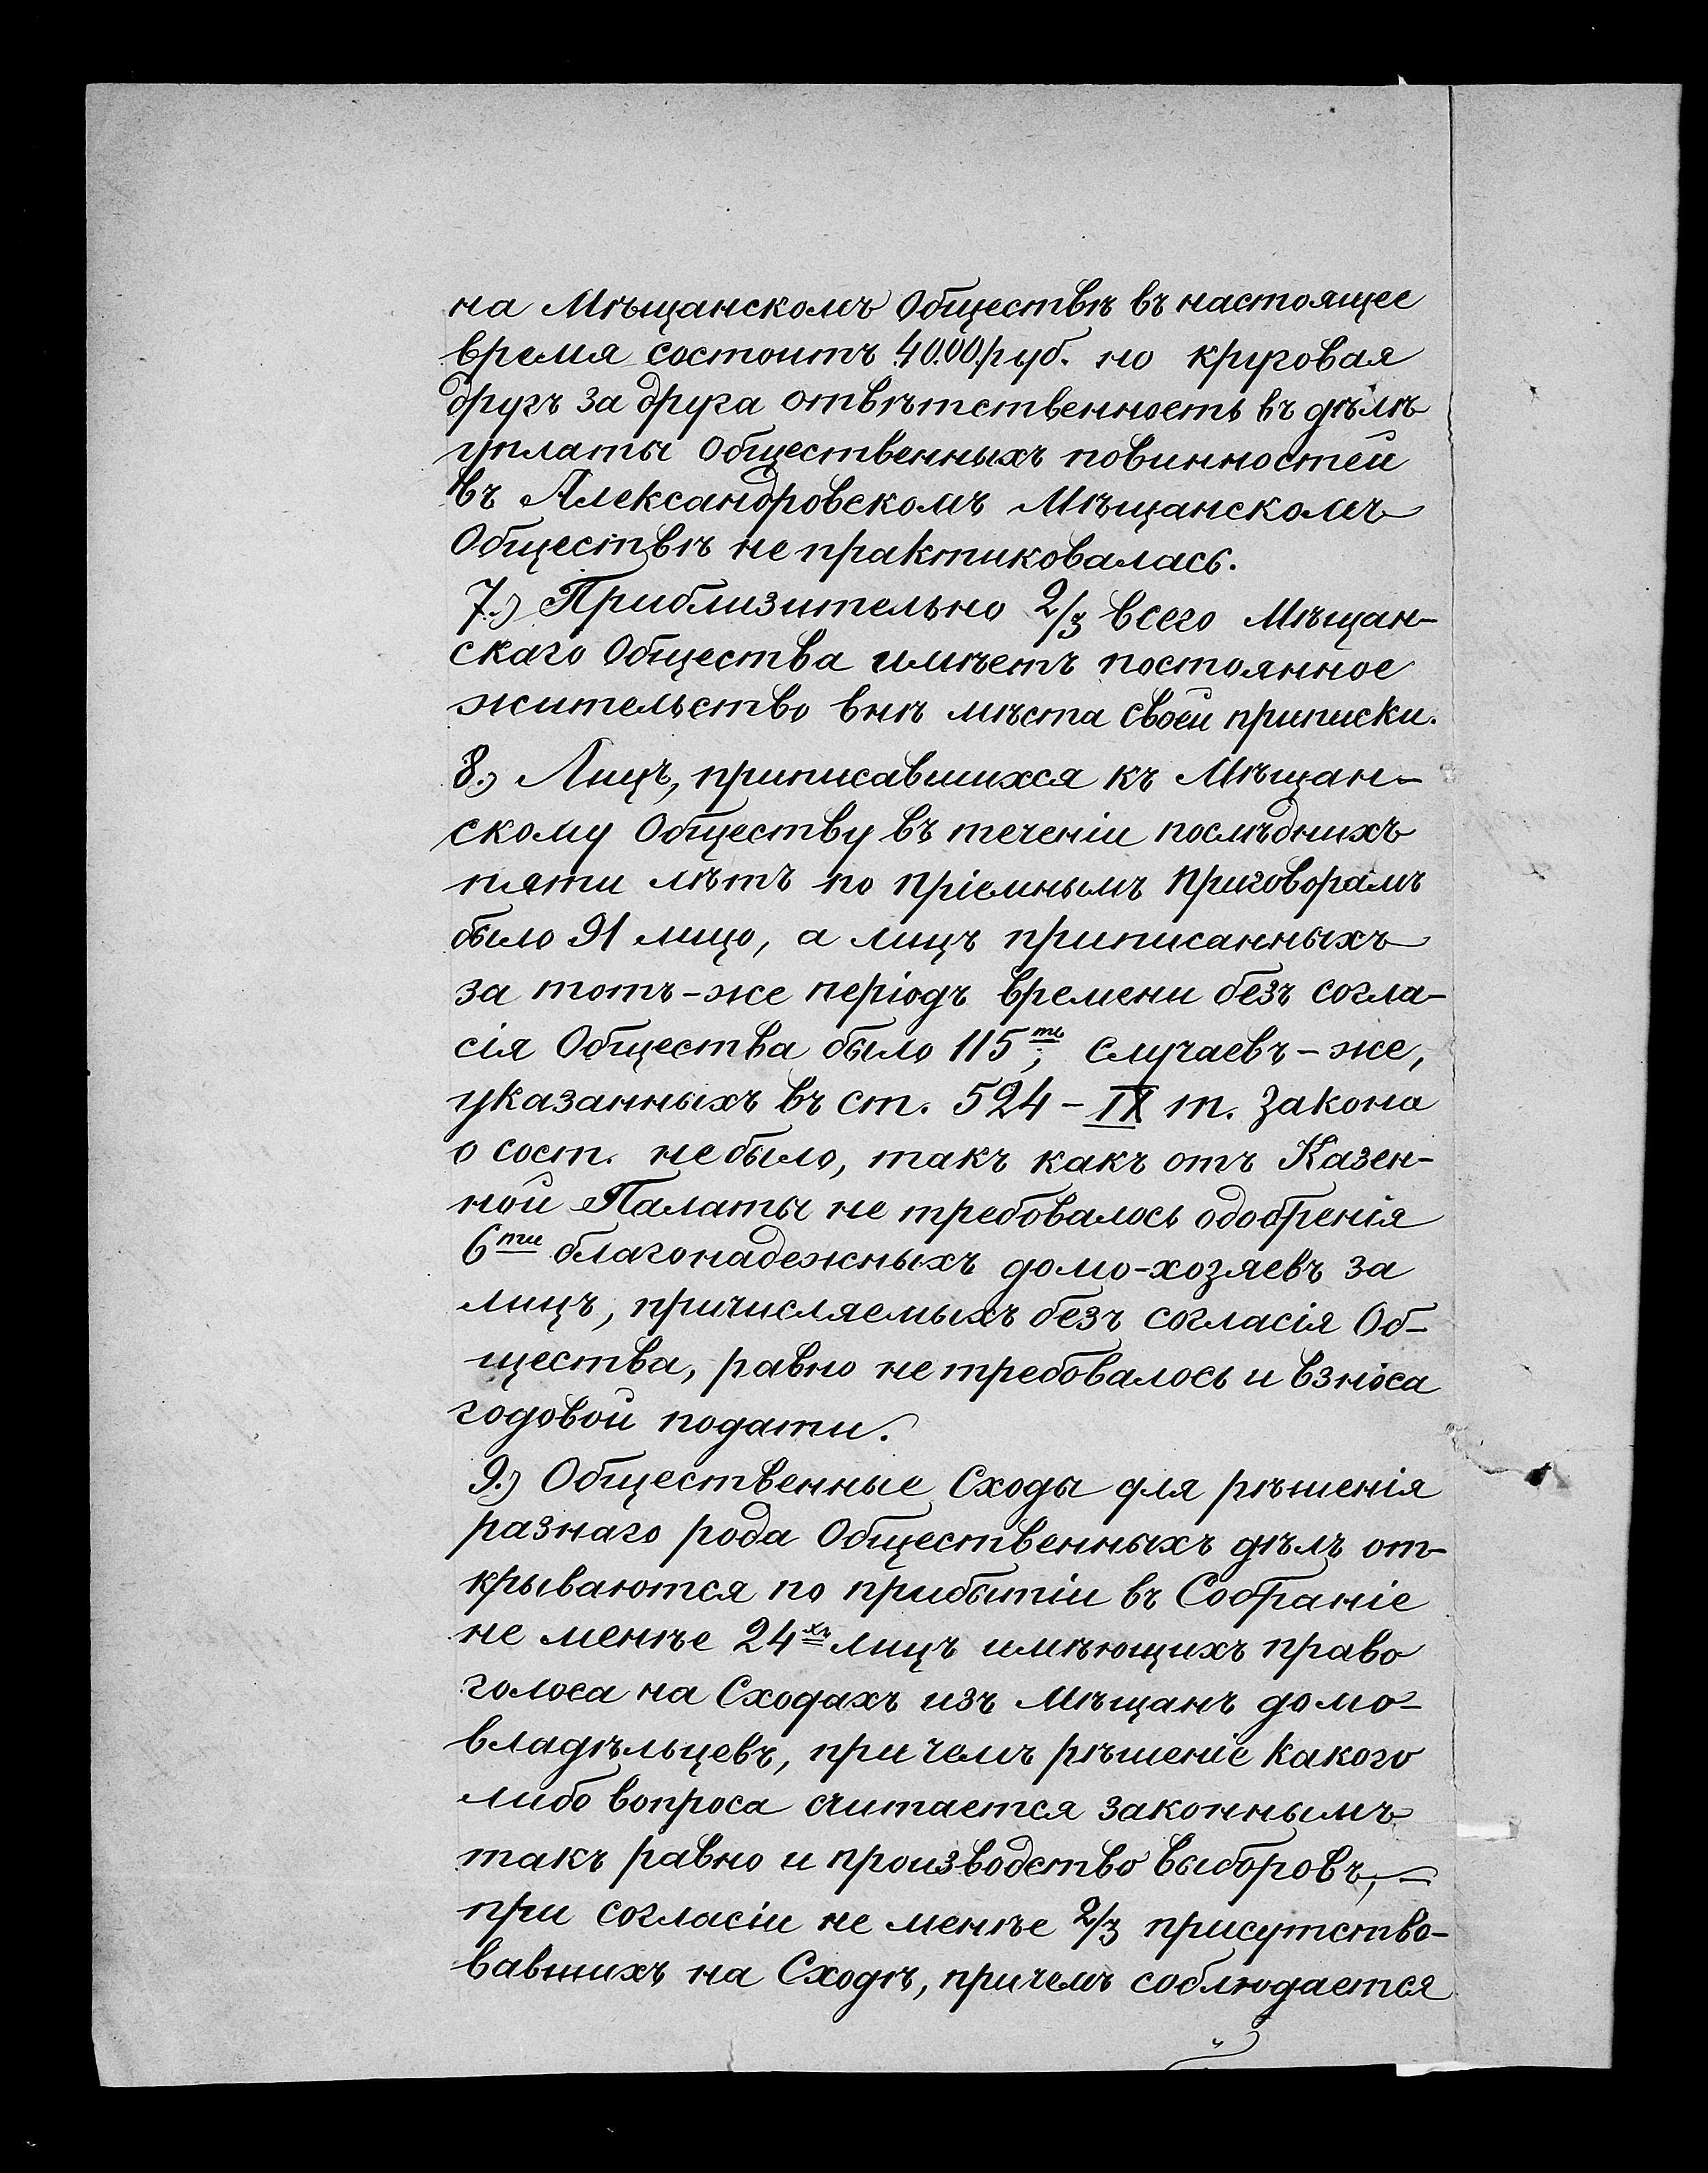 на Мѣщанскомъ Обществѣ въ настоящее
время состоитъ 4000 руб. но круговая
другъ за друга отвѣтственность въ дѣлѣ
уплаты Общественныхъ повинностей
въ Александровскомъ Мѣщанскомъ
Обществѣ не практиковалась.
7.) Приблизительно 2/3 всего Мѣщан-
скаго Общества имѣетъ постоянное
жительство внѣ мѣста своей приписки.
8.) Лицъ, приписавшихся къ Мѣщан-
скому Обществу въ теченіи послѣднихъ
пяти лѣтъ по пріемнымъ приговорамъ
было 91 лицо, а лицъ приписанныхъ
за тотъ-же періодъ времени безъ согла-
сія Общества было 115ть; случаевъ-же,
указанныхъ въ ст. 524 - IX т. Закона
о сост. не было, такъ какъ отъ Казен-
ной Палаты не требовалось одобренія
6ти благонадежныхъ домо-хозяевъ за
лицъ, причисляемыхъ безъ согласія Об-
щества, равно не требовалось и взноса
годовой подати.
9.) Общественные Сходы для рѣшенія
разнаго рода Общественныхъ дѣлъ от-
крываются по прибытіи въ Собраніе
не менѣе 24хъ лицъ имѣющихъ право
голоса на Сходахъ изъ Мѣщанъ домо-
владѣльцевъ, при чемъ рѣшеніе какого
либо вопроса считается законнымъ
такъ равно и производство выборовъ, -
при согласіи не менѣе 2/3 присутство-
вавшихъ на Сходѣ, причемъ соблюдается